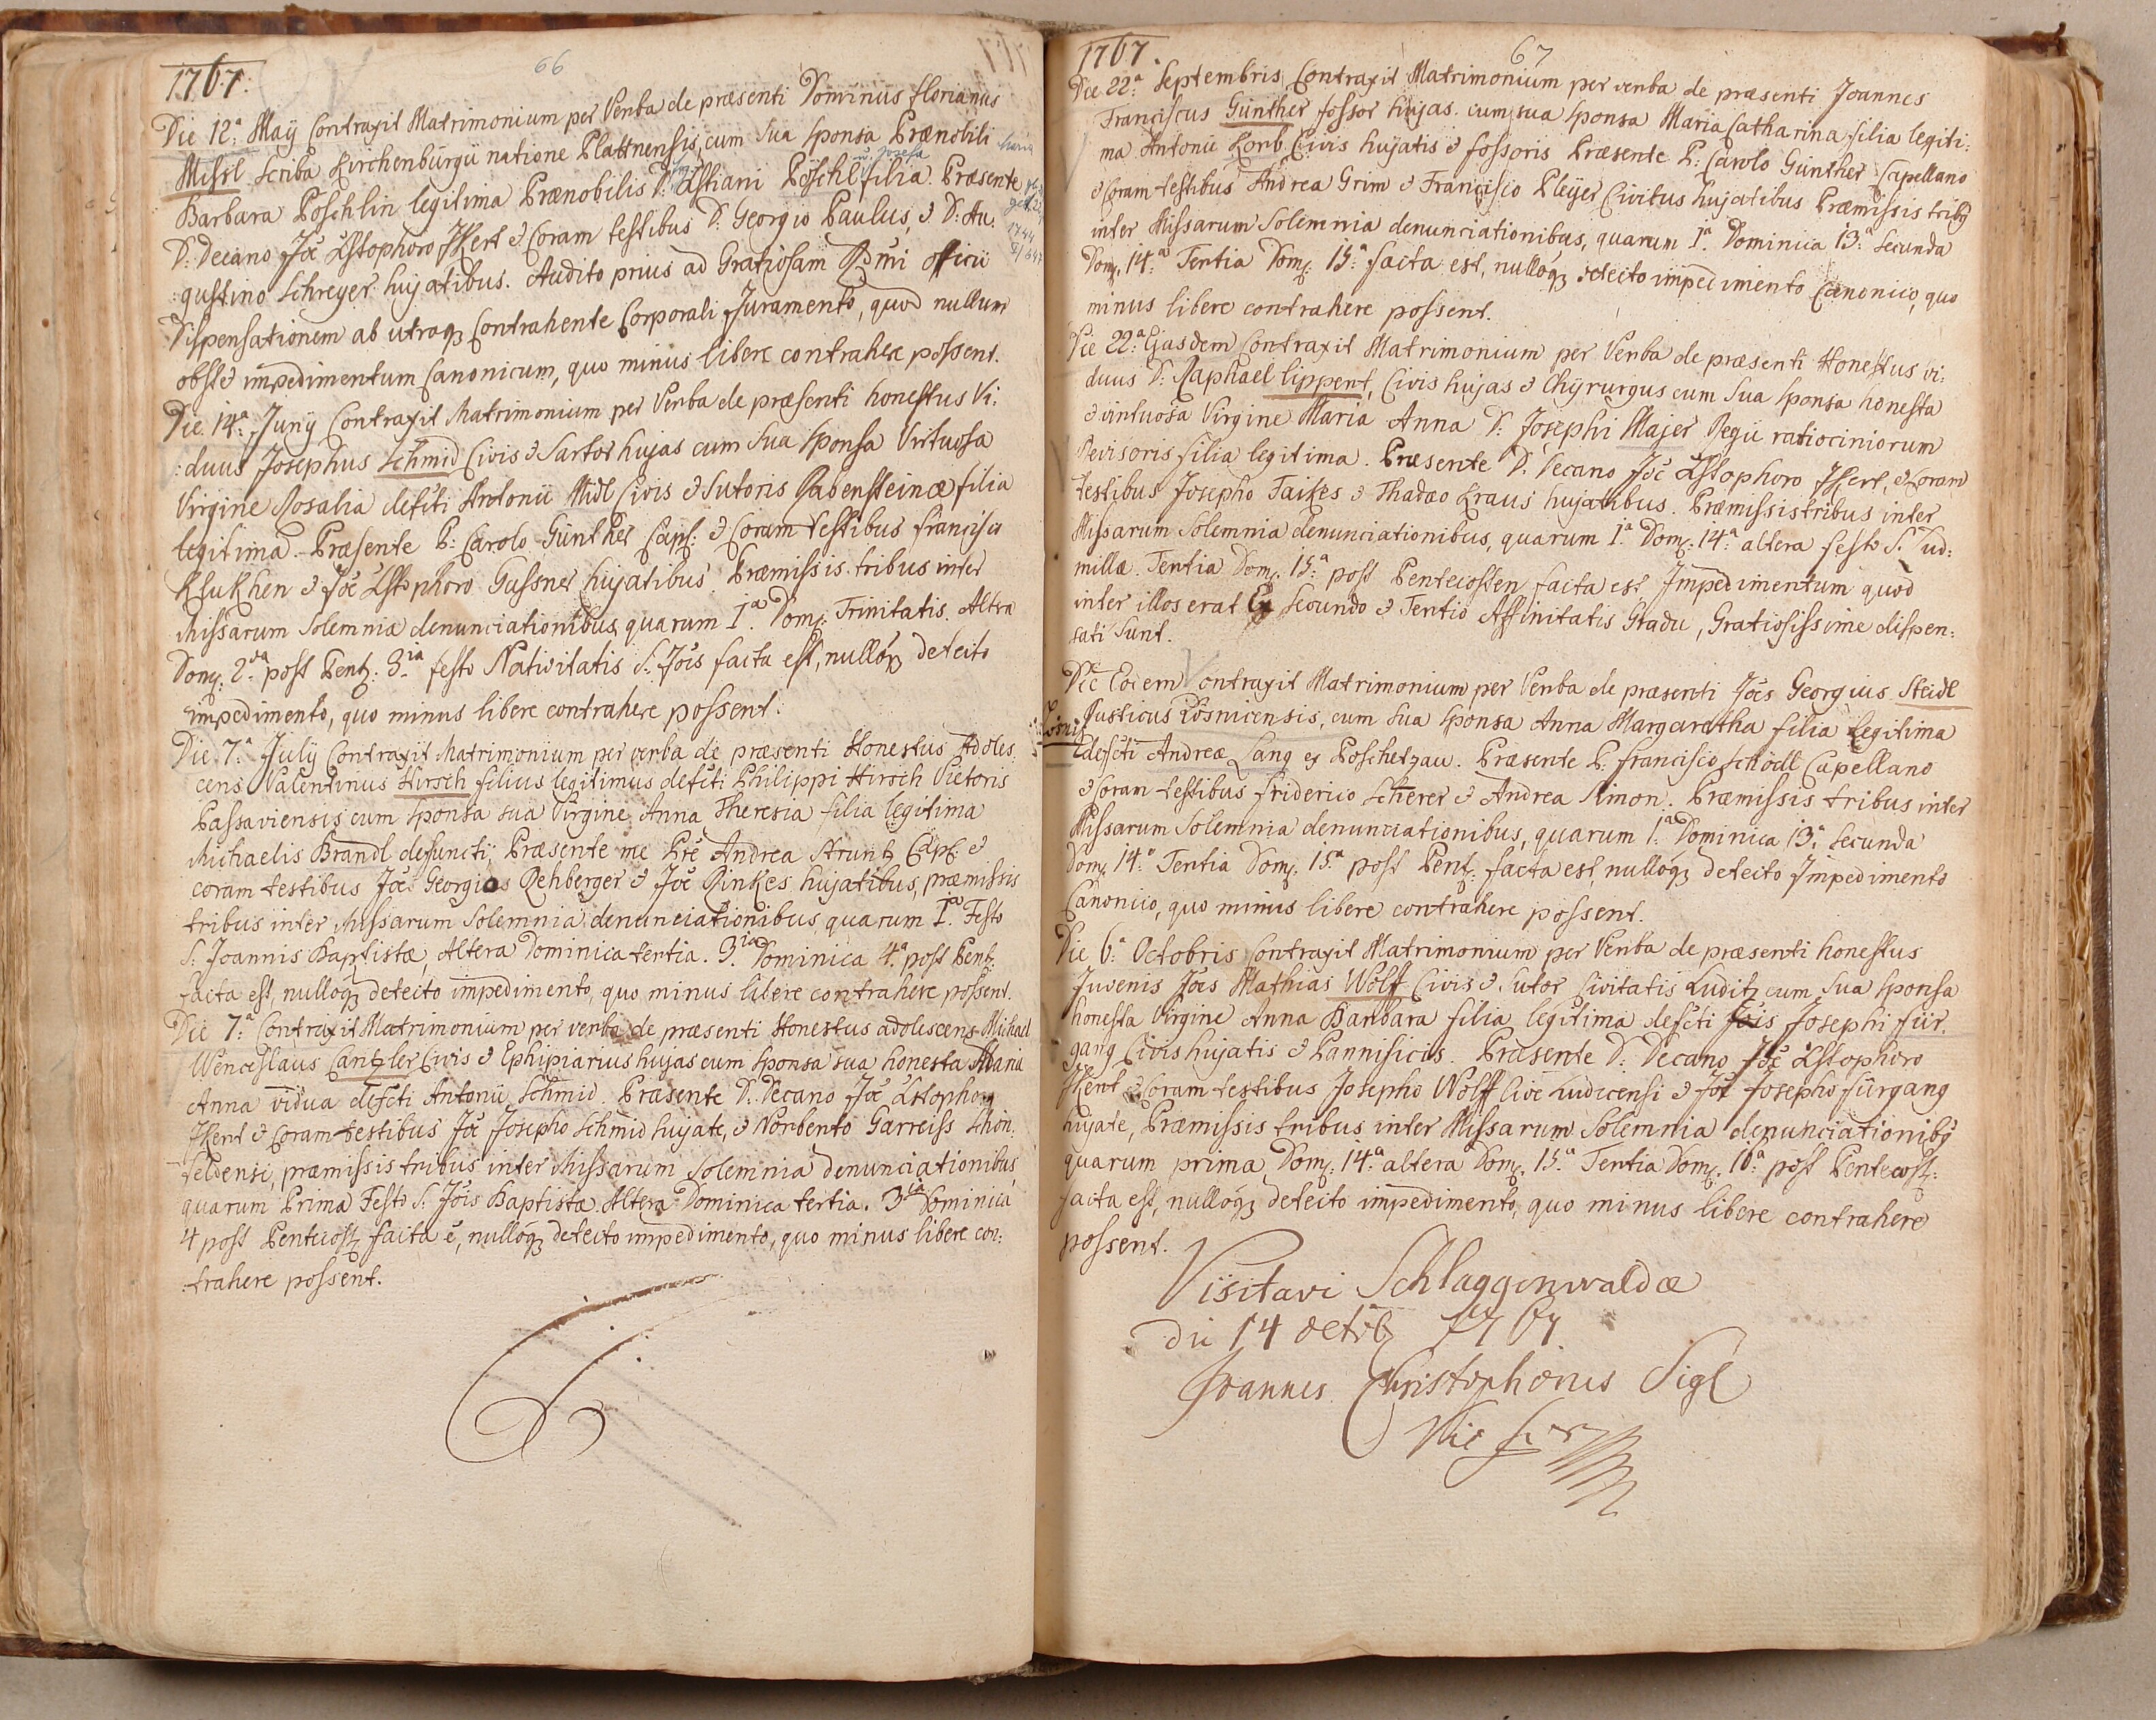 66
1767.
Die 12.ª Maÿ Contraxit Matrimonium per Verba de præsenti Dominus Florianus
Missl Scriba Kirchenbürgii natione Plattnensis, cum Sua Sponsa Prænobili
Barbara Pöschlin legitima Prænobilis D: Xstiani Pöschl filia. Præsente
D: Decano Joe Xstophoro Ikert & Coram testibus D: Georgio Paulus, & D: Au:
:gustino Schreyer hujatibus. Audito prius ad Gratiosam Rsmi officii
Dispensationem ab utraqʒ Contrahente Corporali Juramento, quod nullum
obstet impedimentum Canonicum, quo minus libere contrahere possent.
Die 14.ª Junÿ Contraxit Matrimonium per Verba de præsenti honestus Vi:
:duus Josephus Schmid Civis & Sartor hujas cum Sua Sponsa Virtuosa
Virgine Rosalia defcti Antonii Midl Civis & Sutoris Rabensteinæ filia
legitima. Præsente P: Carolo Günther Capl: & Coram testibus Francisco
Klukhen & Joe Xstophoro Gassner hujatibus. Præmissis tribus inter
Missarum Solemnia denunciationibus quarum 1.ª Domc: Trinitatis. Altra
Domc: 2.da post Pent: 3.ia festo Nativitatis S: Jois facta est, nulloqʒ detecto
impedimento, quo minus libere contrahere possent.
Die 7.ª Julÿ Contraxit Matrimonium per verba de præsenti Honestus Adoles:
cens Valentinus Hirsch filius legitimus defcti Philippi Hirsch Pictoris
Passaviensis cum Sponsa sua Virgine Anna Theresia filia legitima
Michaelis Brandl defuncti, Præsente me Pre Andrea Strunz Capl: &
coram testibus Joe Georgio Rehberger & Joe Rinkes hujatibus, præmissis
tribus inter Missarum Solemnia denunciationibus quarum 1.ª Festo
S: Joannis Baptistæ, Altera Dominica tertia. 3.ia Dominica 4.ª post Pent:
facta est, nulloqʒ detecto impedimento, quo minus libere contrahere possent.
Die 7.ª Contraxit Matrimonium per verba de præsenti Honestus adolescens Michael
Wenceslaus Cantzler Civis & Ephipiarius hujas cum Sponsa sua honesta Maria
Anna vidua defcti Antonii Schmid. Præsente D: Decano Joe Xstophoro
Ikert & Coram testibus Joe Josepho Schmid hujate, & Norberto Garreiss Schön:
feldensi, præmissis tribus inter Missarum Solemnia denunciationibus
quarum Prima Festo S: Jois Baptistæ. Altera Dominica tertia. 3.ia Dominica
4 post Pentecost facta ē, nulloqʒ detecto impedimento, quo minus libere con:
:trahere possent.
67
1767.
Die 22.ª Septembris Contraxit Matrimonium per verba de præsenti Joannes
Franciscus Günther fossor hujas. cum sua Sponsa Maria Catharina filia legiti:
ma Antonii Korb Civis hujatis & fossoris Præsente P: Carolo Günther Capellano
& Coram testibus Andrea Grim & Francisco Pleÿer Civibus hujatibus Præmissis tribq
inter Missarum Solemnia denunciationibus, quarum 1.ª Dominica 13.ª Secunda
Domc. 14.ª Tertia Domc: 15.ª facta est, nulloqʒ detecto impedimento Canonico, quo
minus libere contrahere possent.
Die 22.ª Ejusdem Contraxit Matrimonium per Verba de præsenti Honestus vi:
duus D: Raphael Lippert, Civis hujas & Chÿrurgus cum Sua Sponsa honesta
& virtuosa Virgine Maria Anna D: Josephi Majer Regii ratiociniorum
Revisoris filia legitima. Præsente D. Decano Joe Xstophoro Ikert, & Coram
testibus Josepho Taikes & Thadæo Kraus hujatibus. Præmissis tribus inter
Missarum Solemnia denunciationibus, quarum 1.ª Domc: 14.ª altera festo S. Lud:
millæ. Tertia Domc. 15.ª post Pentecosten facta est. Impedimentum quod
inter illos erat Ex Secundo & Tertio Affinitatis Gradu, Gratiosissime dispen:
sati Sunt.
Die Eodem Contraxit Matrimonium per Verba de præsenti Jois Georgius Steidl
Rusticus Lösnicensis, cum Sua Sponsa Anna Margaretha filia Legitima
defcti Andreæ Lang ex Poschetzau. Præsente P. Francisco Schödl Capellano
& Coram testibus Friderico Scherer & Andrea Simon. Præmissis tribus inter
Missarum Solemnia denunciationibus, quarum 1.ª Dominica 13.ª Secunda
Domc. 14.ª Tertia Domc: 15.ª post Pent: facta est, nulloqʒ detecto Impedimento
Canonico, quo minus libere contrahere possent.
Die 6.ª Octobris Contraxit Matrimonium per Verba de præsenti honestus
Juvenis Jois Mathias Wolff Civis & Sutor Civitatis Luditz cum Sua Sponsa
honesta Virgine Anna Barbara filia legitima defcti Jois Josephi Für:
gang Civis hujatis & Pannificis. Præsente D: Decano Joe Xstophoro
Ikert & Coram testibus Josepho Wolff Cive Ludicensi & Joe Josepho Fürgang
hujate, Præmissis tribus inter Missarum Solemnia denunciationibq
quarum prima Domc: 14.ª altera Domc. 15.ª Tertia Domc. 16.ª post Pentecost:
facta est, nulloqʒ detecto impedimento, quo minus libere contrahere
possent.
Visitavi Schlaggenwaldæ
die 14 octobr 1767
Joannes Christophorus Sigl
Vic for